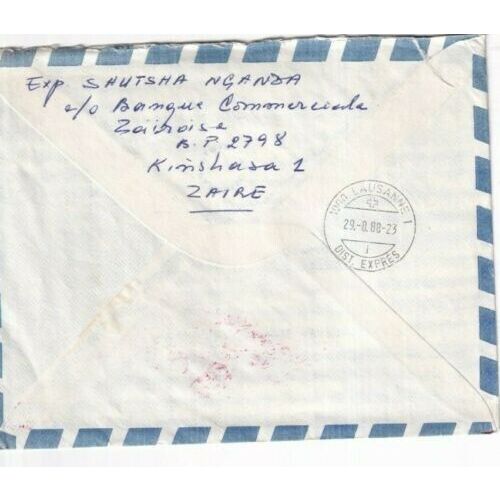 Exp SHUTSHA NGANDA
c/o Banque Commerciale
Zaïroise
B.P. 2798
Kinshasa 1
ZAIRE
1000 LAUSANNE 1
29.-8.88-23
1
DIST. EXPRÈS